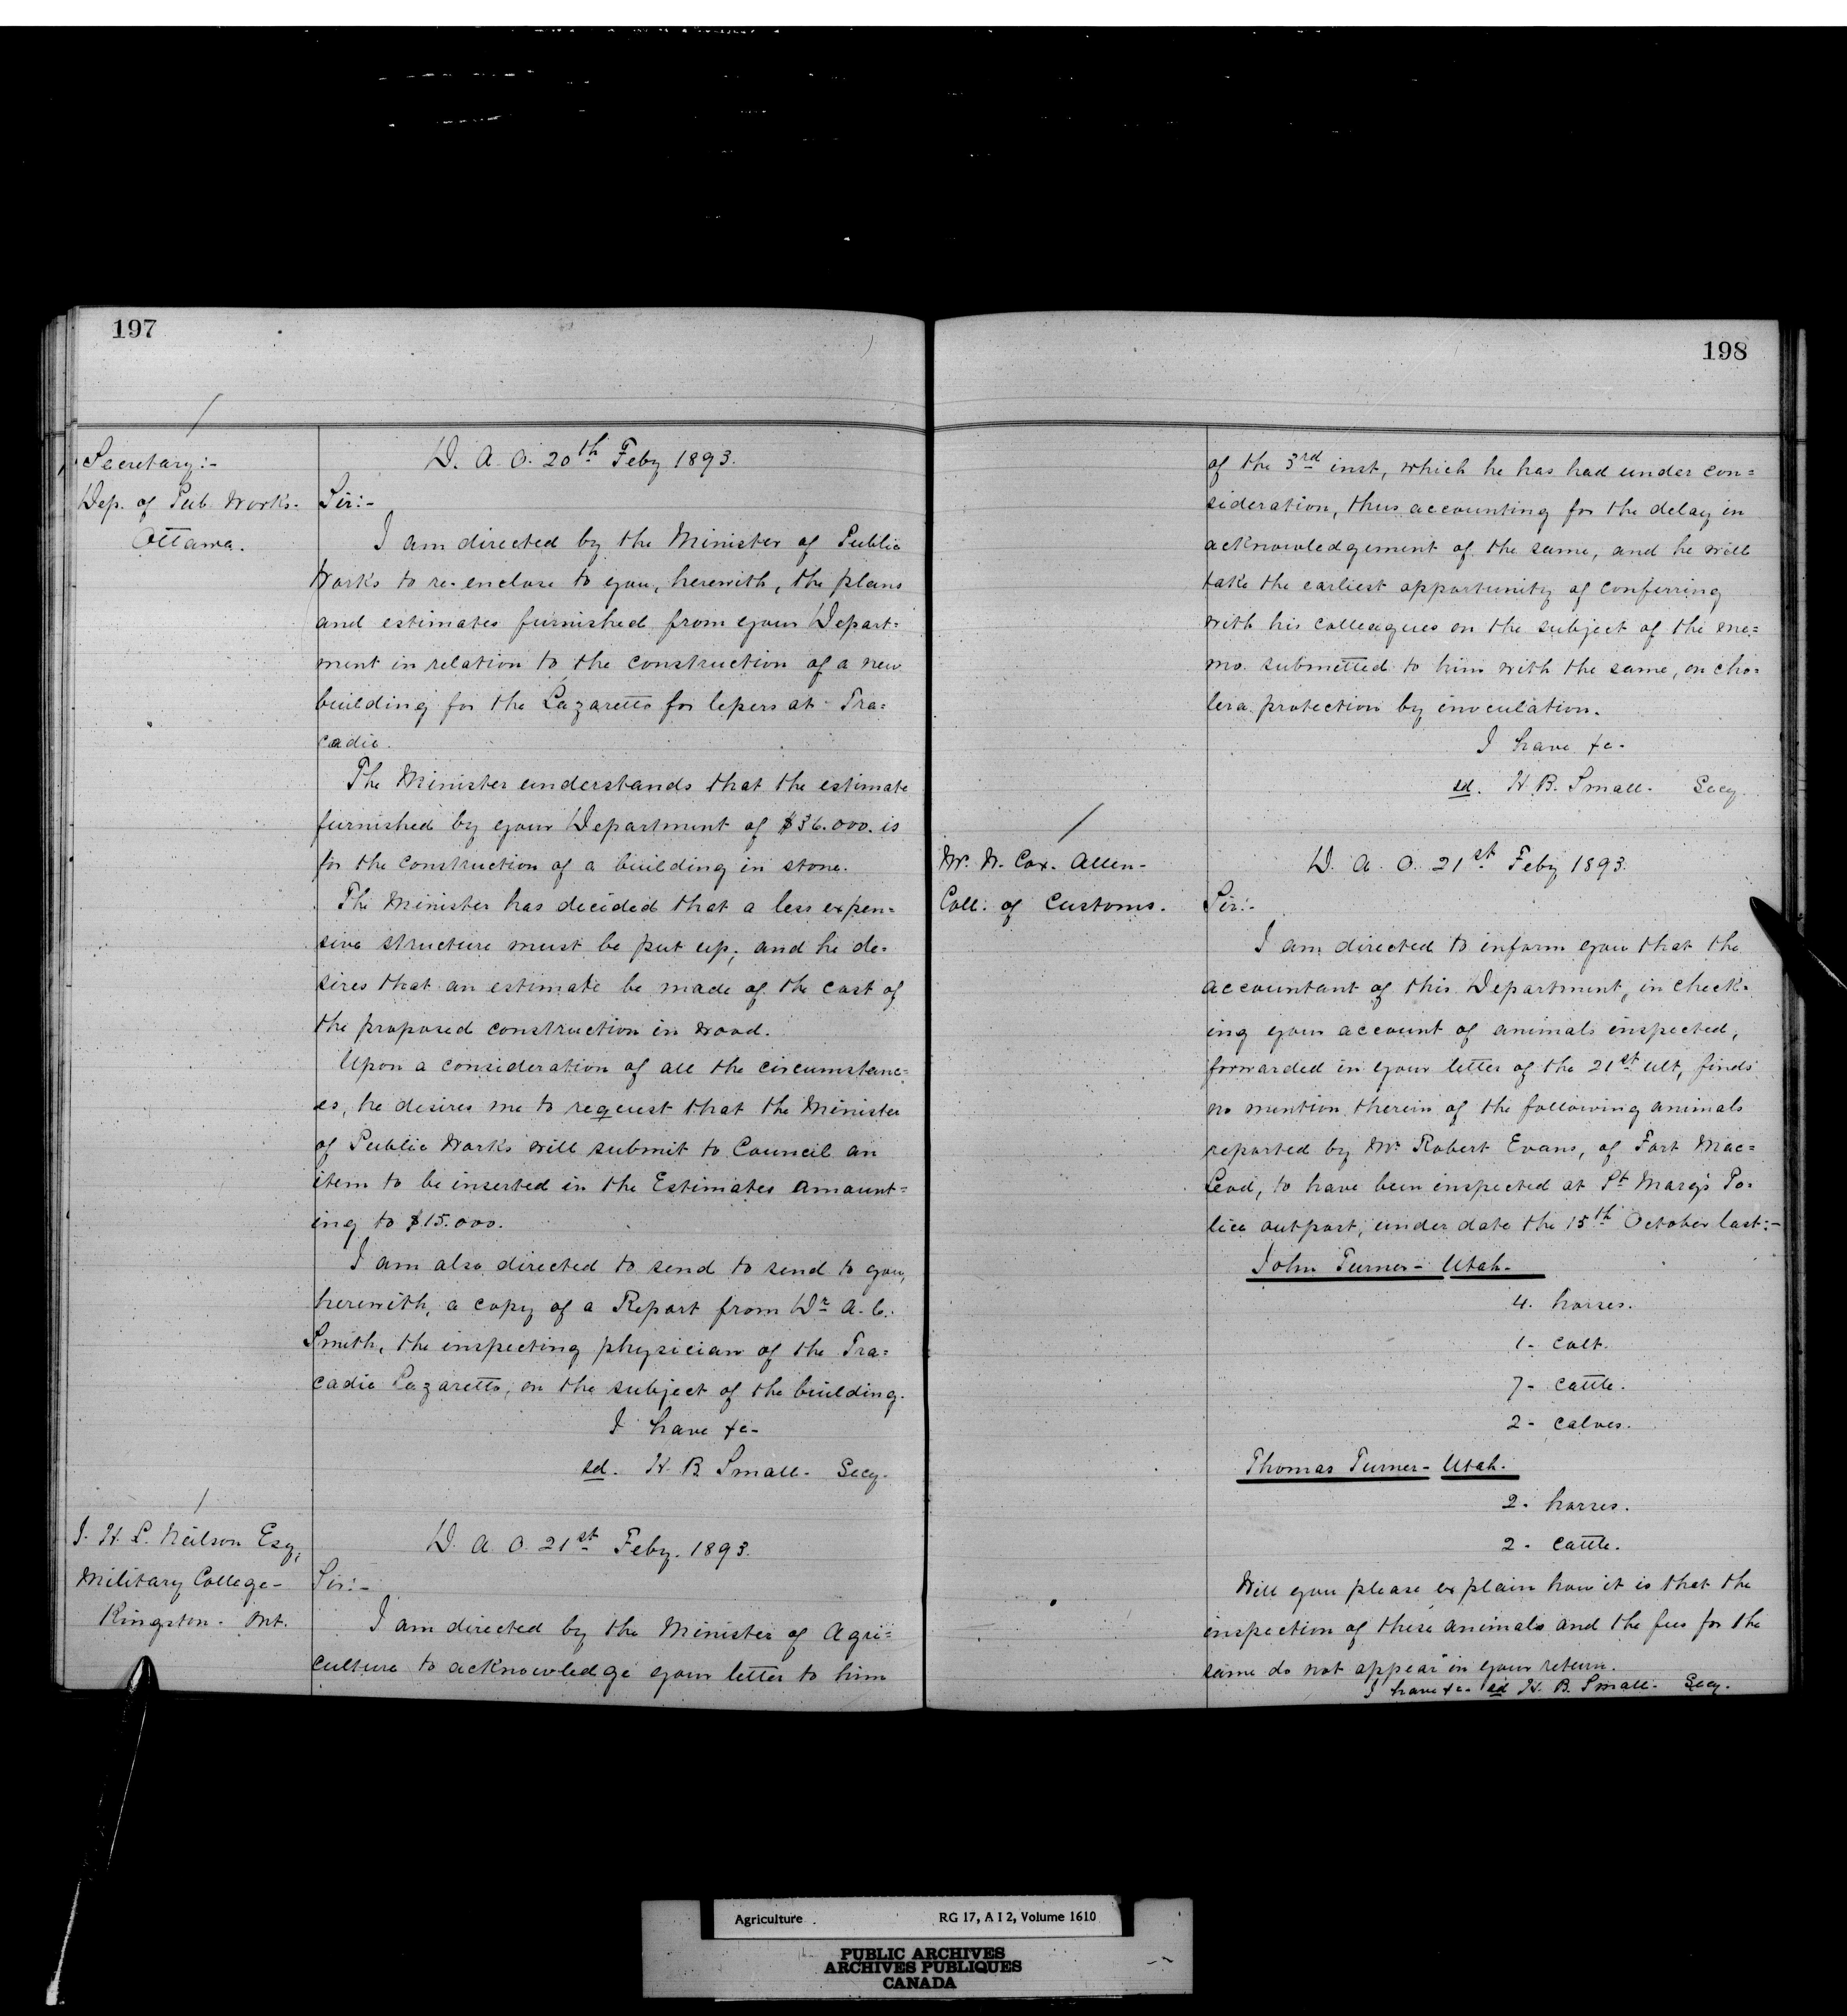 197
Secretary:-
Dep. of Pub. Works.
Ottawa.
D. A. O. 20th Feby 1893.
Sir:-
I am directed by the Minister of Public
Works to re-enclose to you, herewith, the plans
and estimates furnished from your Depart=
ment in relation to the construction of a new
building for the Lazaretto for lepers at Tra=
cadie.
The Minister understands that the estimate
furnished by your Department of $36.000. is
for the construction of a building in stone.
The Minister has decided that a less expen=
sive structure must be put up; and he de=
sires that an estimate be made of the cost of
the proposed construction in wood.
Upon a consideration of all the circumstanc=
es, he desires me to request that the Minister
of Public Works will submit to Council an
item to be inserted in the Estimates amount=
ing to $15.000.
I am also directed to send to send to you,
herewith, a copy of a Report from Dr A. C.
Smith, the inspecting physician of the Tra=
cadie Lazaretto, on the subject of the building.
I have &c-
sd. H. B. Small. Secy.
J. H. L. Neilson Esq,
Military College-
Kingston. Ont.
D. A. O. 21st Feby. 1893.
Sir:-
I am directed by the Minister of Agri=
culture to acknowledge your letter to him
198
of the 3rd inst, which he has had under con=
sideration, thus accounting for the delay in
acknowledgement of the same, and he will
take the earliest opportunity of conferring
with his colleagues on the subject of the me=
mo. submitted to him with the same, on cho=
lera protection by inoculation.
I have &c-
sd. H. B. Small. Secy.
Mr. W. Cox. Allen-
Coll: of Customs.
D. A. O. 21st Feby 1893.
Sir:-
I am directed to inform you that the
accountant of this Department, in check=
ing your account of animals inspected,
forwarded in your letter of the 21st ult, finds
no mention therein of the following animals
reported by Mr Robert Evans, of Fort Mac=
Leod, to have been inspected at St Mary's Po=
lice outpost, under date the 15th October last:-
John Turner- Utah-
4. horses.
1- colt.
7- cattle.
2- calves.
Thomas Turner- Utah.
2. horses.
2. cattle.
Will you please explain how it is that the
inspection of these animals and the fees for the
same do not appear in your return.
I have &c- sd H. B. Small- Secy.
Agriculture RG 17, A I 2, Volume 1610
PUBLIC ARCHIVES
ARCHIVES PUBLIQUES
CANADA